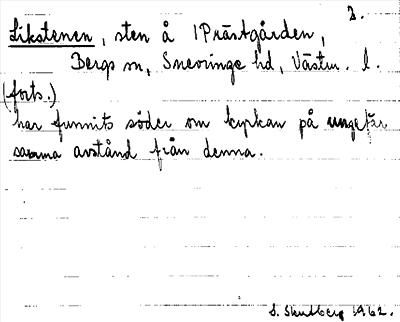 2.
Likstenen, sten å 1 Prästgården,
Bergs sn, Snevringe hd, Västm. l.
(forts.)
har funnits söder om kyrkan på ungefär
samma avstånd från denna.
S. 1962.